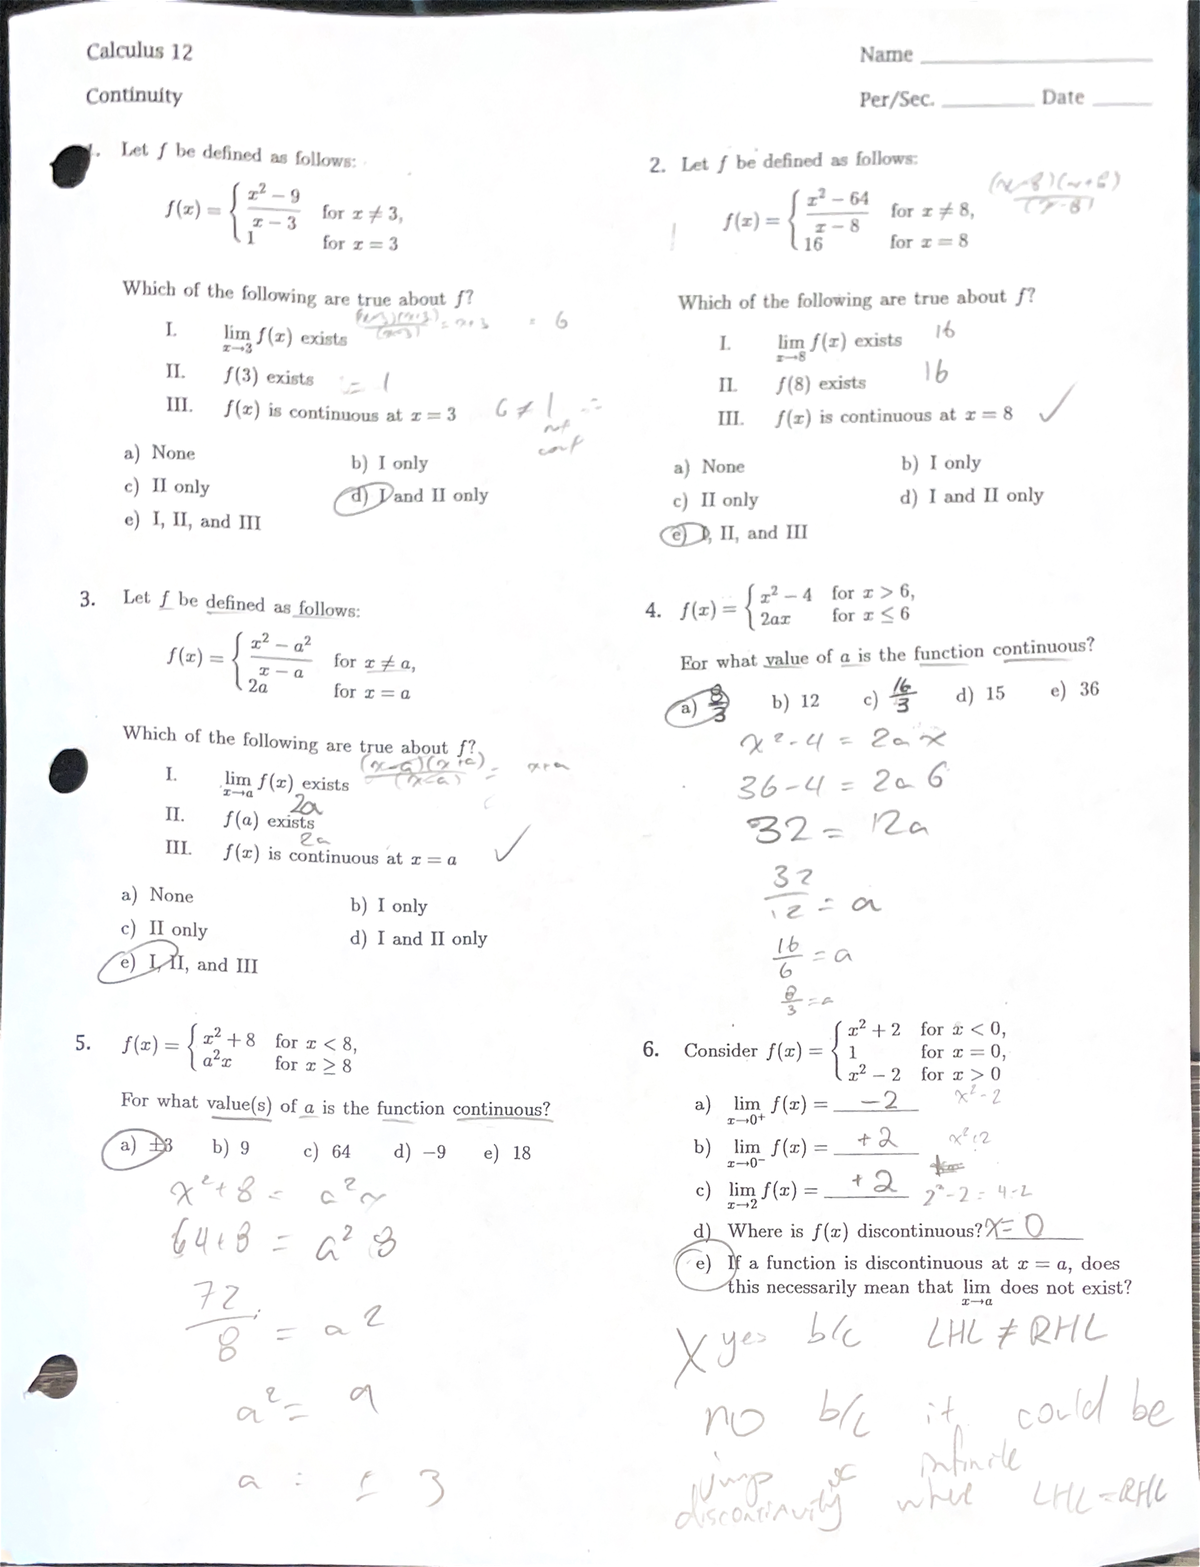 Calculus 12
Name
Continuity
Per/Sec. Date
1. Let f be defined as follows:
f(x) = { x² − 9 / x − 3 for x ≠ 3,
1 for x = 3
Which of the following are true about f?
(x-3)(x+3) / (x-3) = x+3 = 6
I. lim x→3 f(x) exists
II. f(3) exists = 1
III. f(x) is continuous at x = 3 6 ≠ 1 ∴
not
cont
a) None b) I only
c) II only d) I and II only
e) I, II, and III
2. Let f be defined as follows:
(x-8)(x+8) / (x-8)
f(x) = { x² − 64 / x − 8 for x ≠ 8,
16 for x = 8
Which of the following are true about f?
I. lim x→8 f(x) exists 16
II. f(8) exists 16
III. f(x) is continuous at x = 8 ✓
a) None b) I only
c) II only d) I and II only
e) I, II, and III
3. Let f be defined as follows:
f(x) = { x² − a² / x − a for x ≠ a,
2a for x = a
Which of the following are true about f?
(x-a)(x+a) / (x-a) = x+a
I. lim x→a f(x) exists
2a
II. f(a) exists
2a
III. f(x) is continuous at x = a ✓
a) None b) I only
c) II only d) I and II only
e) I, II, and III
4. f(x) = { x² − 4 for x > 6,
2ax for x ≤ 6
For what value of a is the function continuous?
a) 8/3 b) 12 c) 16/3 d) 15 e) 36
x² - 4 = 2ax
36-4 = 2a6
32 = 12a
32/12 = a
16/6 = a
8/3 = a
5. f(x) = { x² + 8 for x < 8,
a²x for x ≥ 8
For what value(s) of a is the function continuous?
a) ±3 b) 9 c) 64 d) −9 e) 18
x²+8 = a²x
64+8 = a² 8
72/8 = a²
a² = 9
a = ± 3
6. Consider f(x) = { x² + 2 for x < 0,
1 for x = 0,
x² − 2 for x > 0
a) lim x→0⁺ f(x) = -2 x²-2
b) lim x→0⁻ f(x) = +2 x²+2
c) lim x→2 f(x) = +2 2²-2 = 4-2
d) Where is f(x) discontinuous? x= 0
e) If a function is discontinuous at x = a, does
this necessarily mean that lim x→a does not exist?
X yes b/c LHL ≠ RHL
no b/c it could be
jump infinite
discontinuity where LHL = RHL